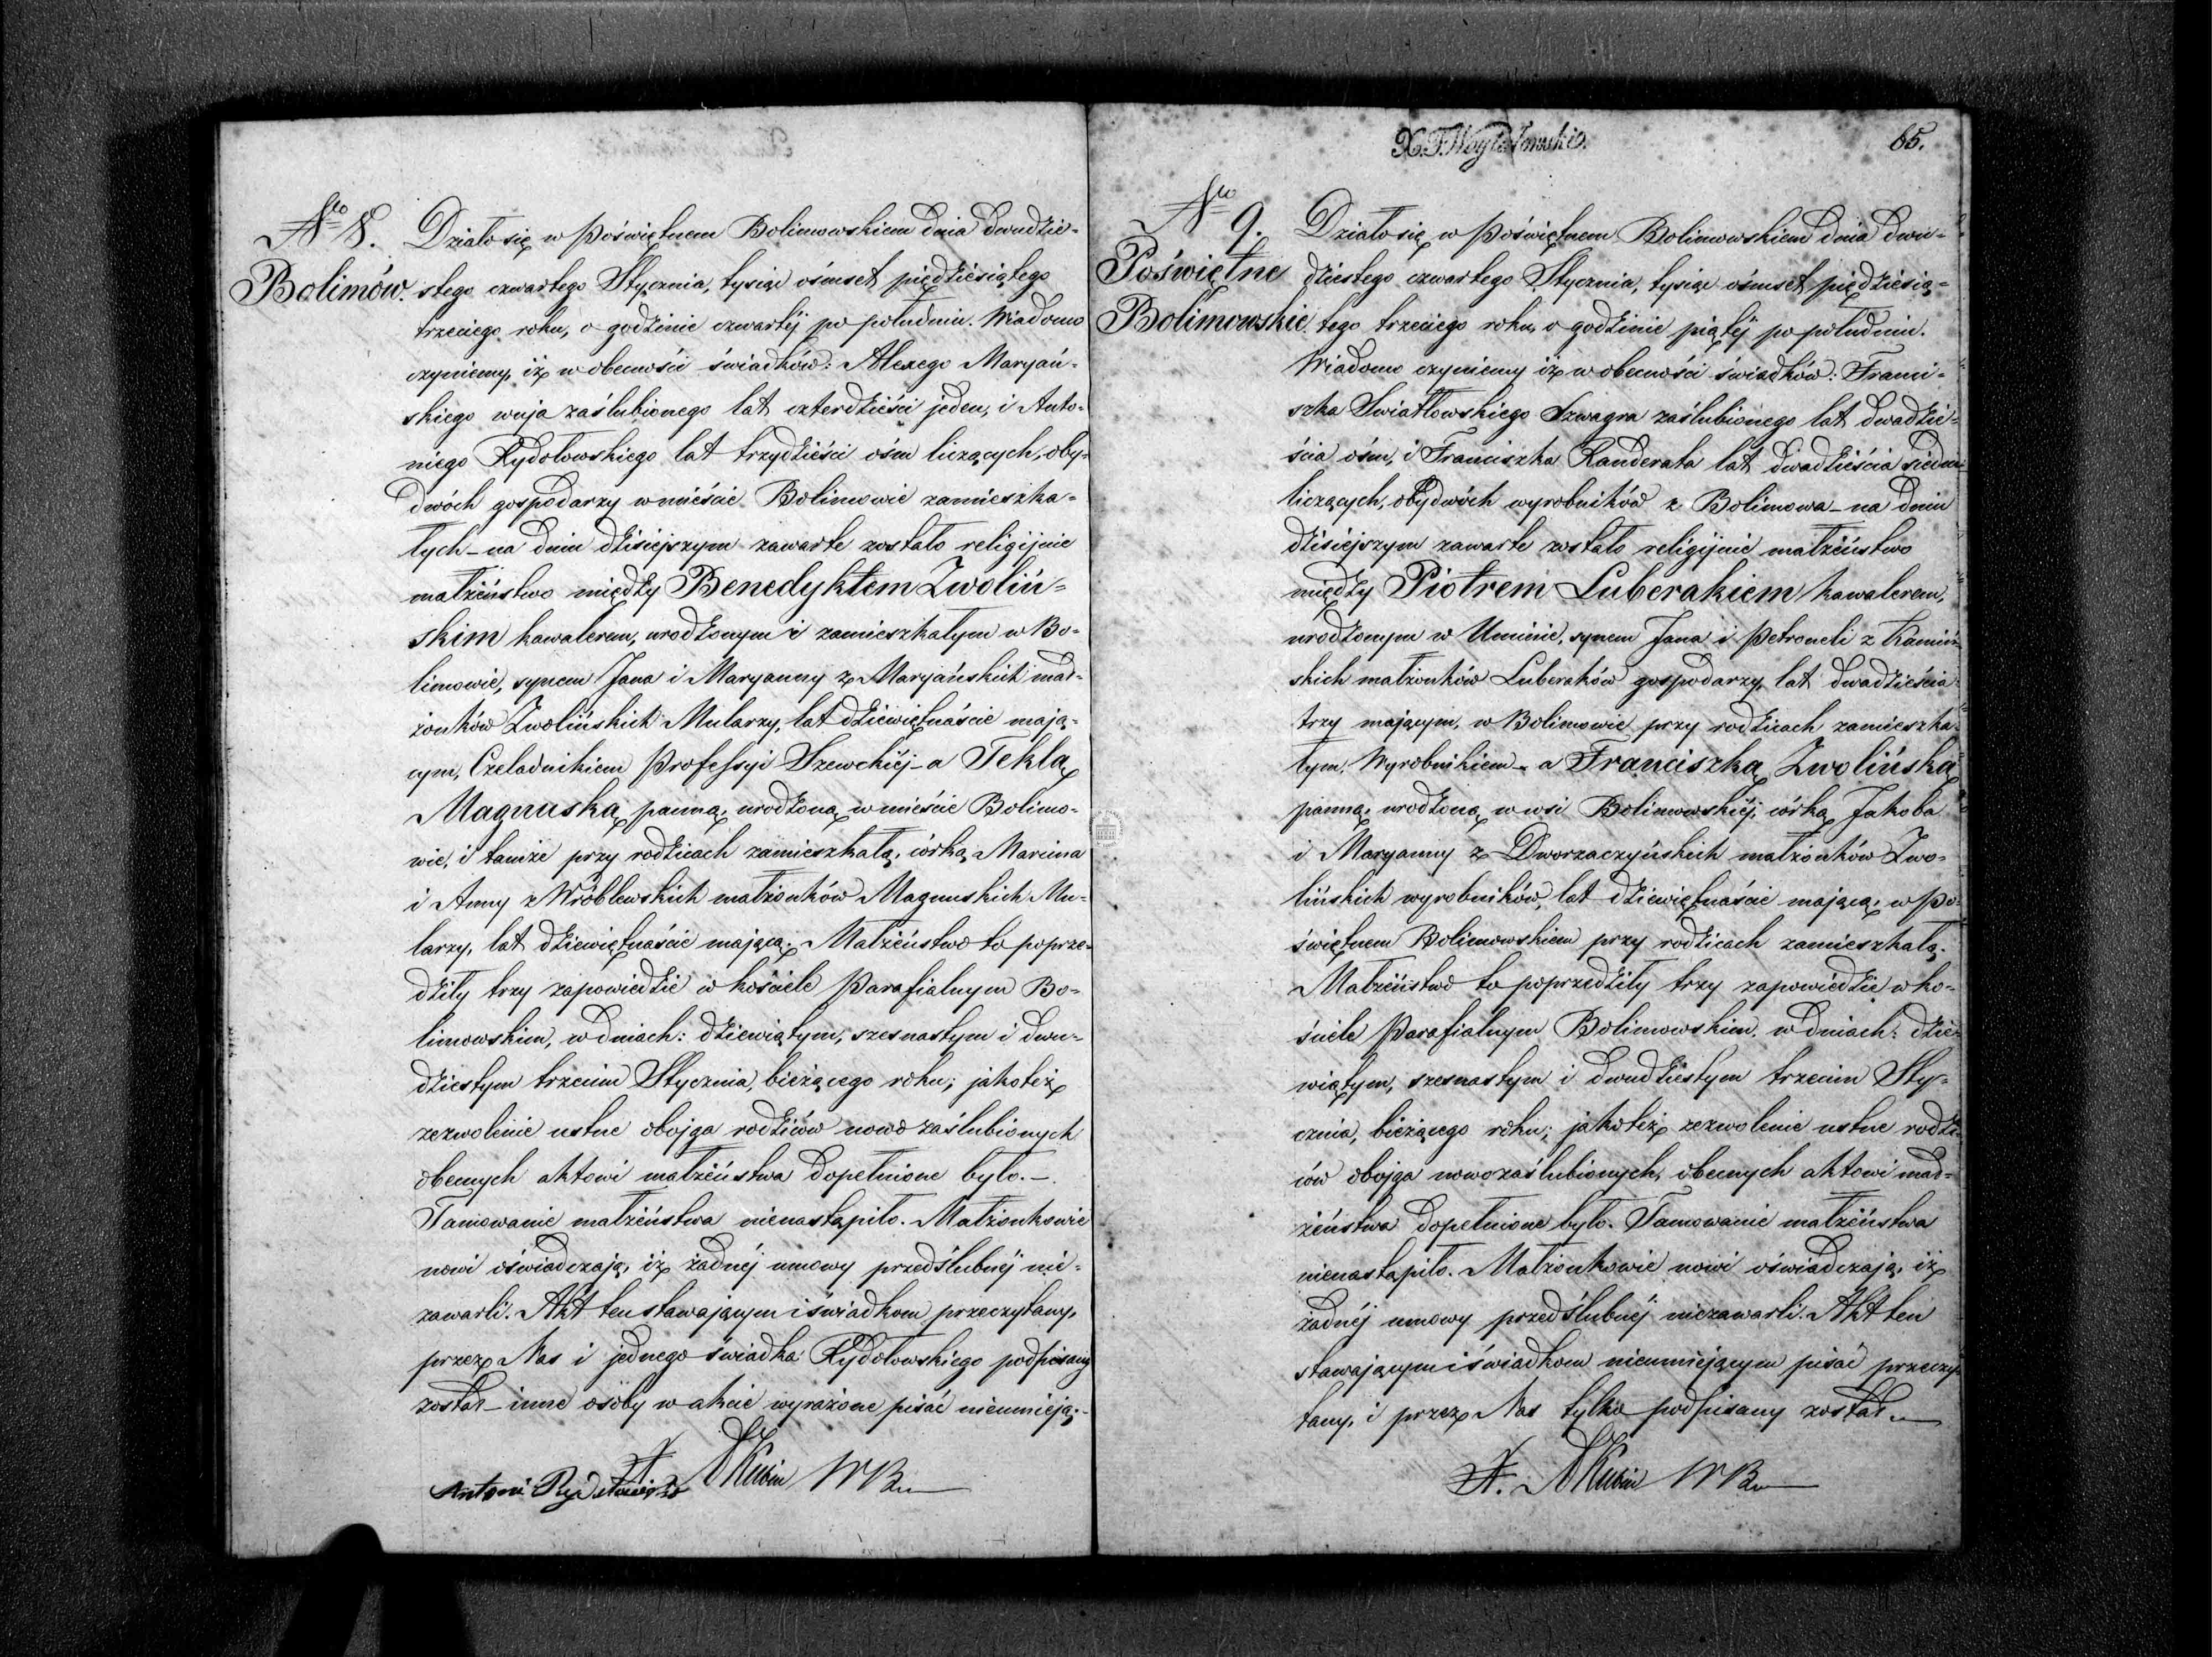 Nro 8.
Bolimów.
Działo się w Poświętnem Bolimowskiem dnia dwudzie=
stego czwartego Stycznia, tysiąc ośmset pięćdziesiątego
trzeciego roku, o godzinie czwartéj po południu. Wiadomo
czyniemy, iż w obecności świadków: Alexego Maryań=
skiego wuja zaślubionego lat czterdzieści jeden, i Anto=
niego Rydołowskiego lat trzydzieści ośm liczących, oby=
dwóch gospodarzy w mieście Bolimowie zamieszka=
łych – na dniu dzisiejszym zawarte zostało religijnie
małżeństwo między Benedyktem Zwoliń=
skim kawalerem, urodzonym i zamieszkałym w Bo=
limowie, synem Jana i Maryanny z Maryańskich mał=
żonków Zwolińskich Mularzy, lat dziewiętnaście mają=
cym, Czeladnikiem Professyi Szewckiéj – a Teklą
Magnuską panną, urodzoną w mieście Bolimo=
wie, i tamże przy rodzicach zamieszkałą, córką Marcina
i Anny z Wróblewskich małżonków Magnuskich Mu=
larzy, lat dziewiętnaście mającą. Małżeństwo to poprze=
dziły trzy zapowiedzie w kościele Parafialnym Bo=
limowskim, w dniach: dziewiątym, szesnastym i dwu=
dziestym trzecim Stycznia, bieżącego roku; jakoteż
zezwolenie ustne obojga rodziców nowo zaślubionych
obecnych aktowi małżeństwa dopełnione było. –
Tamowanie małżeństwa nienastąpiło. Małżonkowie
nowi oświadczają, iż żadnéj umowy przedślubnéj nie=
zawarli. Akt ten stawającym i świadkom przeczytany,
przez Nas i jednego świadka Rydołowskiego podpisany
został – inne osoby w akcie wyrażone pisać nieumieją. –
Antoni
X.F.
65.
Nro 9.
Poświętne
Bolimowskie.
Działo się w Poświętnem Bolimowskiem dnia dwu=
dziestego czwartego Stycznia, tysiąc ośmset pięćdziesią=
tego trzeciego roku, o godzinie piątéj po południu.
Wiadomo czyniemy iż w obecności świadków: Franci=
szka Swiatłowskiego Szwagra zaślubionego lat dwadzie=
ścia ośm, i Franciszka Randerata lat dwadzieścia siedm
liczących, obydwóch wyrobników z Bolimowa – na dniu
dzisiejszym zawarte zostało religijnie małżeństwo
między Piotrem Luberakiem kawalerem,
urodzonym w Uminie, synem Jana i Petroneli z Kamiń=
skich małżonków Luberaków gospodarzy, lat dwadzieścia
trzy mającym, w Bolimowie przy rodzicach zamieszka=
łym, Wyrobnikiem – a Franciszką Zwolińską
panną, urodzoną w wsi Bolimowskiéj, córką Jakoba
i Maryanny z Dworzaczyńskich małżonków Zwo=
lińskich wyrobników, lat dziewiętnaście mającą, w Po=
świętnem Bolimowskiem przy rodzicach zamieszkałą.
Małżeństwo to poprzedziły trzy zapowiedzie w ko=
ściele Parafialnym Bolimowskim, w dniach: dzie=
wiątym, szesnastym i dwudziestym trzecim Sty=
cznia, bieżącego roku; jakoteż zezwolenie ustne rodzi=
ców obojga nowozaślubionych, obecnych aktowi mał=
żeństwa dopełnione było. Tamowanie małżeństwa
nienastąpiło. Małżonkowie nowi oświadczają, iż
żadnéj umowy przedślubnéj niezawarli. Akt ten
stawającym i świadkom nieumiejącym pisać przeczy=
tany, i przez Nas tylko podpisany został. –